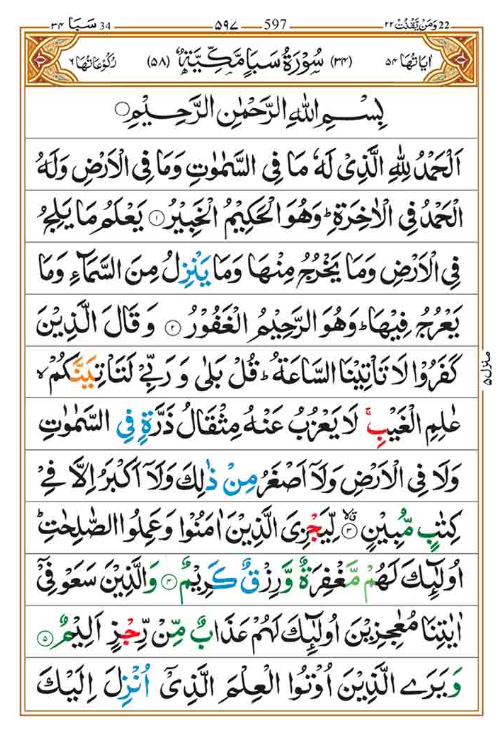 سَبَا ٣٤ 34 ٥٩٧ 597 وَمَنْ يَّقْنُتْ ٢٢ 22
رُكُوْعَاتُهَا ٦ (٥٨) سُوْرَةُ سَبَاٍ مَّكِّيَّةٌ (٣٤) اٰيَاتُهَا ٥٤
بِسْمِ اللّٰهِ الرَّحْمٰنِ الرَّحِيْمِ۝
اَلْحَمْدُ لِلّٰهِ الَّذِیْ لَهٗ مَا فِی السَّمٰوٰتِ وَمَا فِی الْاَرْضِ وَلَهُ
الْحَمْدُ فِی الْاٰخِرَةِ ؕ وَهُوَ الْحَكِیْمُ الْخَبِیْرُ ۝١ یَعْلَمُ مَا یَلِجُ
فِی الْاَرْضِ وَمَا یَخْرُجُ مِنْهَا وَمَا یَنْزِلُ مِنَ السَّمَآءِ وَمَا
یَعْرُجُ فِیْهَا ؕ وَهُوَ الرَّحِیْمُ الْغَفُوْرُ ۝٢ وَقَالَ الَّذِیْنَ
كَفَرُوْا لَا تَاْتِیْنَا السَّاعَةُ ؕ قُلْ بَلٰی وَرَبِّیْ لَتَاْتِیَنَّكُمْ ۙ
عٰلِمِ الْغَیْبِ ۚ لَا یَعْزُبُ عَنْهُ مِثْقَالُ ذَرَّةٍ فِی السَّمٰوٰتِ
وَلَا فِی الْاَرْضِ وَلَاۤ اَصْغَرُ مِنْ ذٰلِكَ وَلَاۤ اَكْبَرُ اِلَّا فِیْ
كِتٰبٍ مُّبِیْنٍ ۝٣ لِّیَجْزِیَ الَّذِیْنَ اٰمَنُوْا وَعَمِلُوا الصّٰلِحٰتِ ؕ
اُولٰٓئِكَ لَهُمْ مَّغْفِرَةٌ وَّرِزْقٌ كَرِیْمٌ ۝٤ وَالَّذِیْنَ سَعَوْ فِیْۤ
اٰیٰتِنَا مُعٰجِزِیْنَ اُولٰٓئِكَ لَهُمْ عَذَابٌ مِّنْ رِّجْزٍ اَلِیْمٌ ۝٥
وَیَرَی الَّذِیْنَ اُوْتُوا الْعِلْمَ الَّذِیْۤ اُنْزِلَ اِلَیْكَ
منزل ٥